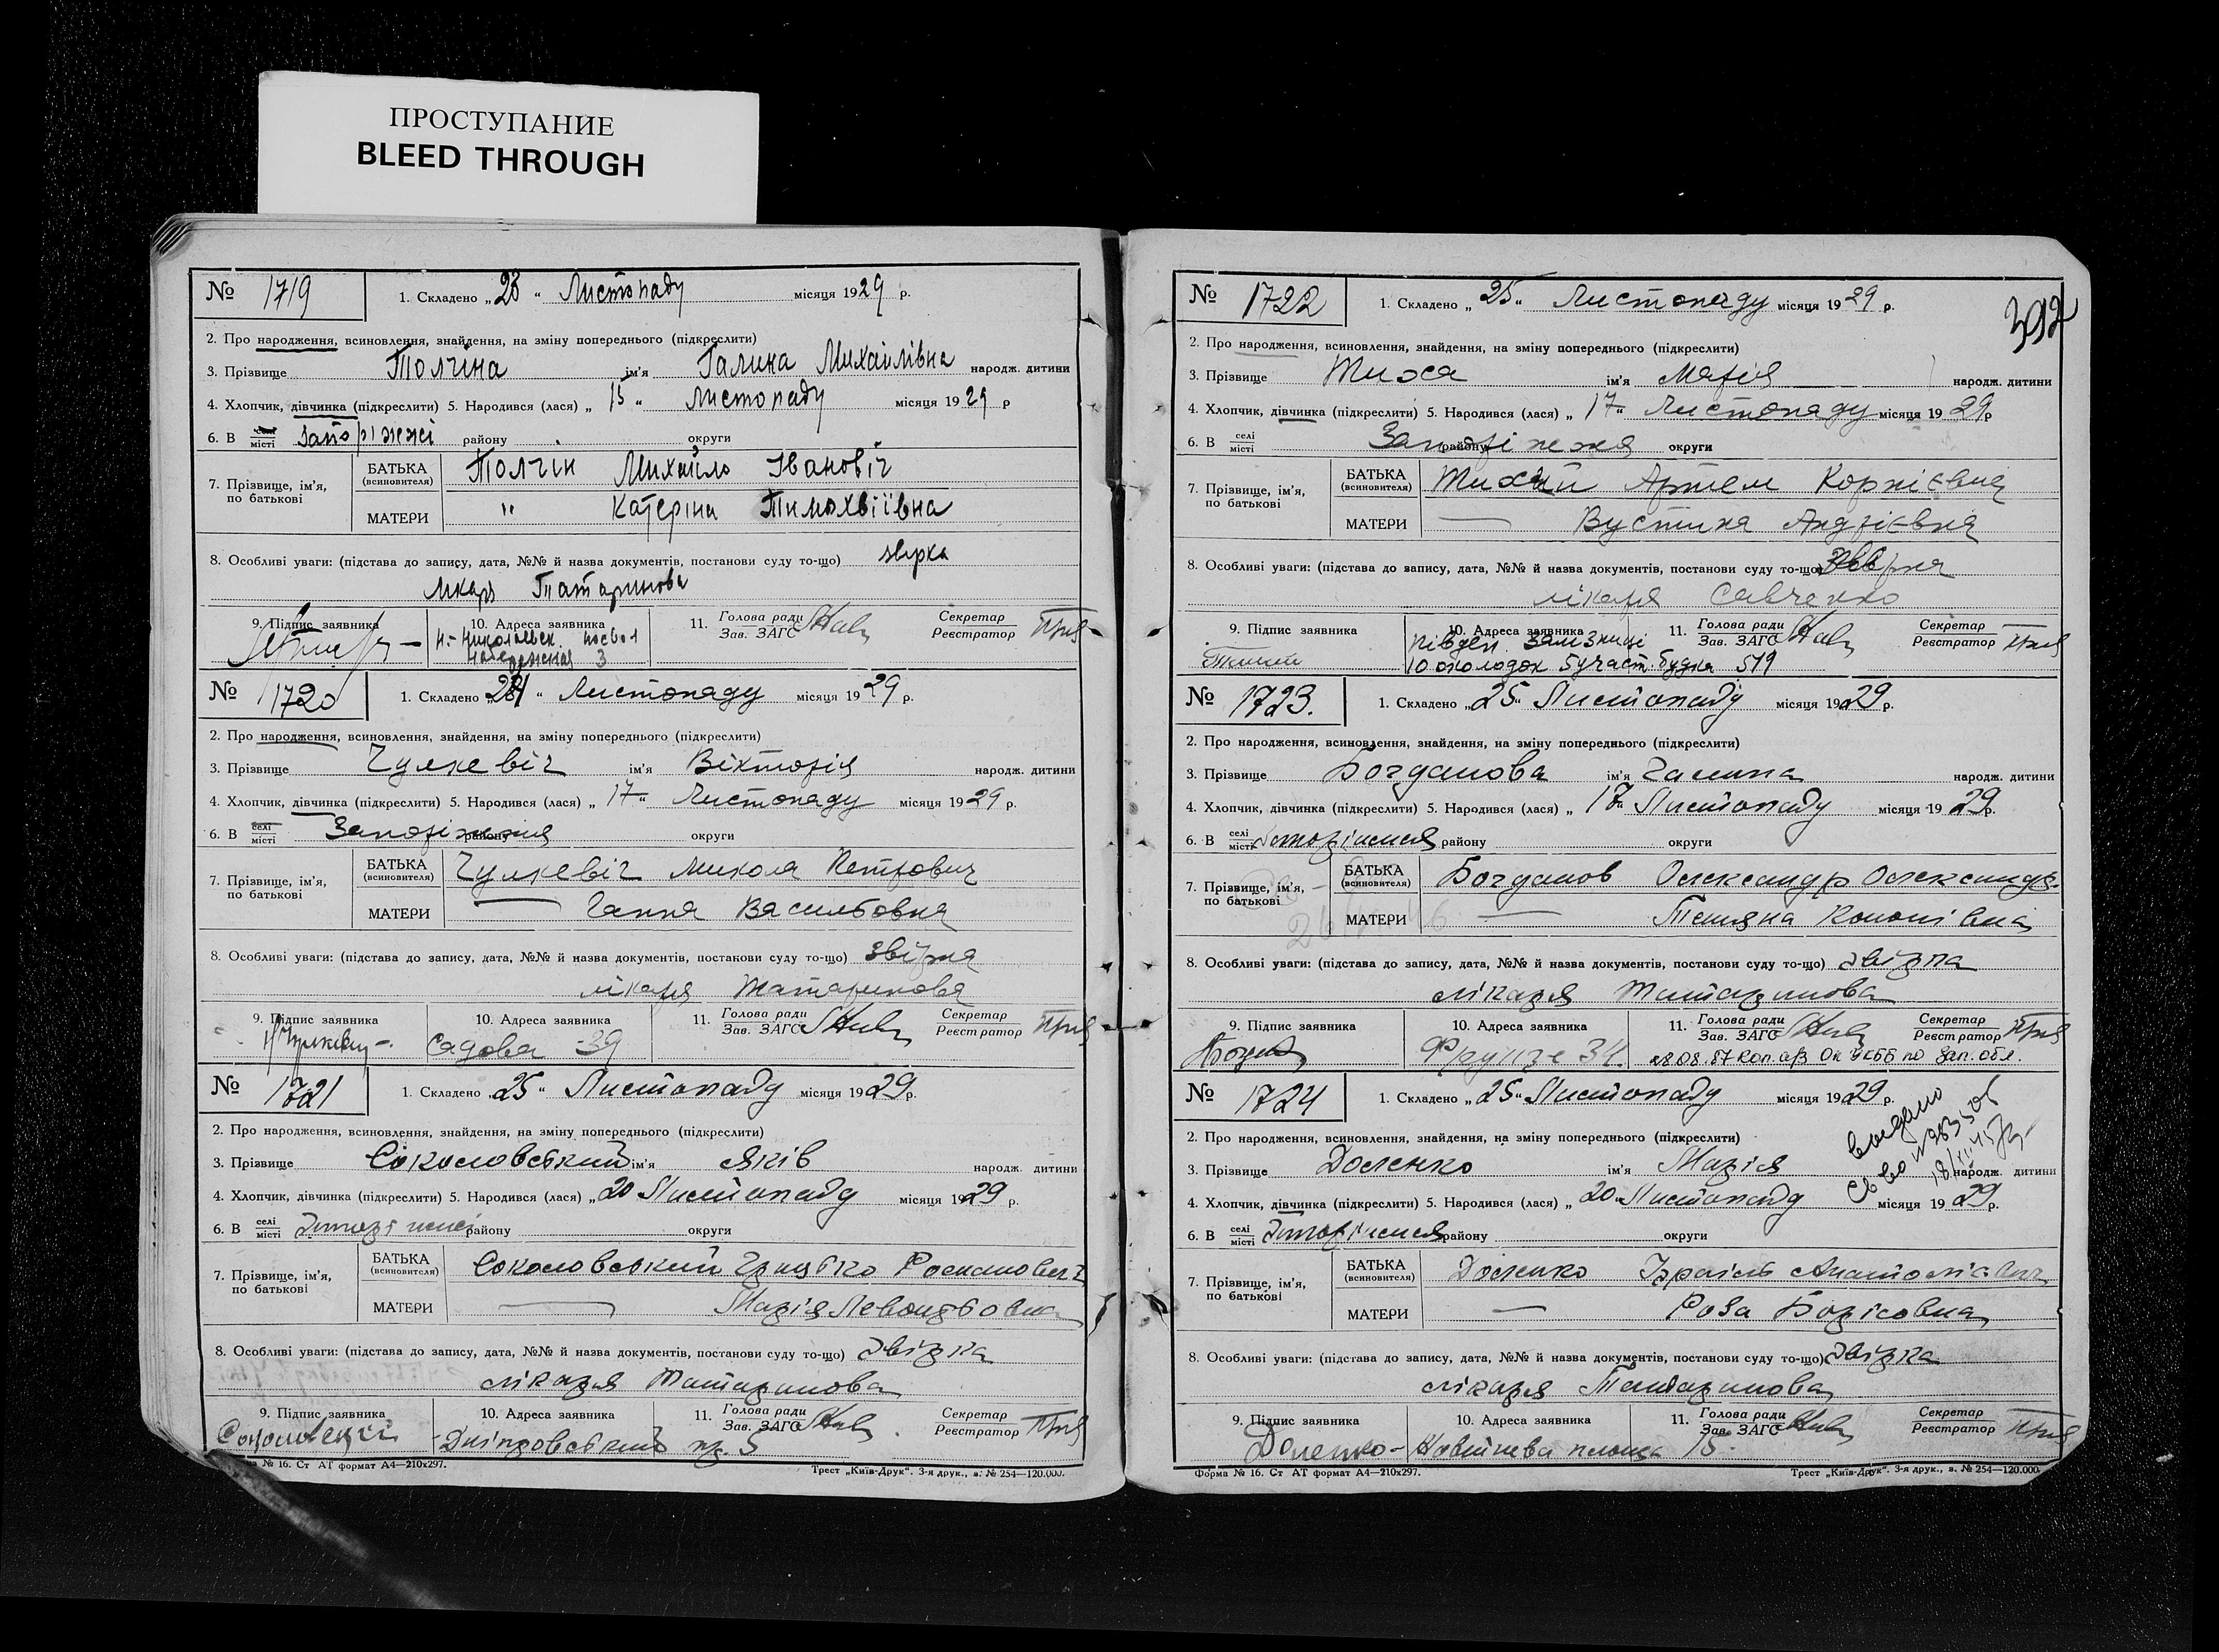 ПРОСТУПАНИЕ
BLEED THROUGH
№ 1719 1. Складено „23“ Листопаду місяця 1929 р.
2. Про народження, всиновлення, знайдення, на зміну попереднього (підкреслити)
3. Прізвище Толчіна ім'я Галина Михайлівна народж. дитини
4. Хлопчик, дівчинка (підкреслити) 5. Народився (лася) „15“ Листопаду місяця 1929 р
6. В селі місті Запоріжжі району округи
7. Прізвище, ім'я, по батькові
БАТЬКА (всиновителя) Толчін Михайло Іванович
МАТЕРИ " Катеріна Тимохвіївна
8. Особливі уваги: (підстава до запису, дата, №№ й назва документів, постанови суду то-що) звірка
лікаря Татаринова
9. Підпис заявника 10. Адреса заявника 11. Голова ради Зав. ЗАГС Секретар Реєстратор
Н.-Николаевск. посёл
Набережная 3
№ 1720 1. Складено „24“ Листопаду місяця 1929 р.
2. Про народження, всиновлення, знайдення, на зміну попереднього (підкреслити)
3. Прізвище Чулкевіч ім'я Вікторія народж. дитини
4. Хлопчик, дівчинка (підкреслити) 5. Народився (лася) „17“ Листопаду місяця 1929 р.
6. В селі місті Запоріжжя району округи
7. Прізвище, ім'я, по батькові
БАТЬКА (всиновителя) Чулкевіч Микола Петрович
МАТЕРИ — Ганна Васильовна
8. Особливі уваги: (підстава до запису, дата, №№ й назва документів, постанови суду то-що) звірка
лікаря Татаринова
9. Підпис заявника 10. Адреса заявника 11. Голова ради Зав. ЗАГС Секретар Реєстратор
Садова 39
№ 1721 1. Складено „25“ Листопаду місяця 1929 р.
2. Про народження, всиновлення, знайдення, на зміну попереднього (підкреслити)
3. Прізвище Соколовський ім'я Яків народж. дитини
4. Хлопчик, дівчинка (підкреслити) 5. Народився (лася) „20 Листопаду місяця 1929 р.
6. В селі місті Запоріжжі району округи
7. Прізвище, ім'я, по батькові
БАТЬКА (всиновителя) Соколовський Грицько
МАТЕРИ — Марія
8. Особливі уваги: (підстава до запису, дата, №№ й назва документів, постанови суду то-що) звірка
лікаря Татаринова
9. Підпис заявника 10. Адреса заявника 11. Голова ради Зав. ЗАГС Секретар Реєстратор
Дніпровський пр. 5
Форма № 16. Ст АТ формат А4—210х297. Трест „Київ-Друк“. 3-я друк., в. № 254—120.000.
392
№ 1722 1. Складено „25“ Листопаду місяця 1929 р.
2. Про народження, всиновлення, знайдення, на зміну попереднього (підкреслити)
3. Прізвище Тиха ім'я Марія народж. дитини
4. Хлопчик, дівчинка (підкреслити) 5. Народився (лася) „17“ Листопаду місяця 1929 р
6. В селі місті Запоріжжя району округи
7. Прізвище, ім'я, по батькові
БАТЬКА (всиновителя) Тихий Артем Корнієвич
МАТЕРИ — Вустина Андрієвна
8. Особливі уваги: (підстава до запису, дата, №№ й назва документів, постанови суду то-що) звірка
лікаря Савченко
9. Підпис заявника 10. Адреса заявника 11. Голова ради Зав. ЗАГС Секретар Реєстратор
Півден. Залізниці
10 околодок 5 участ. будка 519
№ 1723. 1. Складено „25“ Листопаду місяця 1929 р.
2. Про народження, всиновлення, знайдення, на зміну попереднього (підкреслити)
3. Прізвище Богданова ім'я Галина народж. дитини
4. Хлопчик, дівчинка (підкреслити) 5. Народився (лася) „17 Листопаду місяця 1929 р.
6. В селі місті Запоріжжя району округи
7. Прізвище, ім'я, по батькові
БАТЬКА (всиновителя) Богданов Олександр Олександр.
МАТЕРИ — Тетяна Кононівна
8. Особливі уваги: (підстава до запису, дата, №№ й назва документів, постанови суду то-що) звірка
лікаря Татаринова
9. Підпис заявника 10. Адреса заявника 11. Голова ради Зав. ЗАГС Секретар Реєстратор
Фрунзе 34. по Зап. обл.
№ 1724 1. Складено „25“ Листопаду місяця 1929 р.
2. Про народження, всиновлення, знайдення, на зміну попереднього (підкреслити)
3. Прізвище Доленко ім'я Марія народж. дитини
4. Хлопчик, дівчинка (підкреслити) 5. Народився (лася) „20“ Листопаду місяця 1929 р.
6. В селі місті Запоріжжя району округи
7. Прізвище, ім'я, по батькові
БАТЬКА (всиновителя) Доленко Ізраїль Анатолієвич
МАТЕРИ — Роза Борісовна
8. Особливі уваги: (підстава до запису, дата, №№ й назва документів, постанови суду то-що) звірка
лікаря Татаринова
9. Підпис заявника 10. Адреса заявника 11. Голова ради Зав. ЗАГС Секретар Реєстратор
Доленко Жовтнева площа 15
Форма № 16. Ст АТ формат А4—210х297. Трест „Київ-Друк“. 3-я друк., в. № 254—120.000.